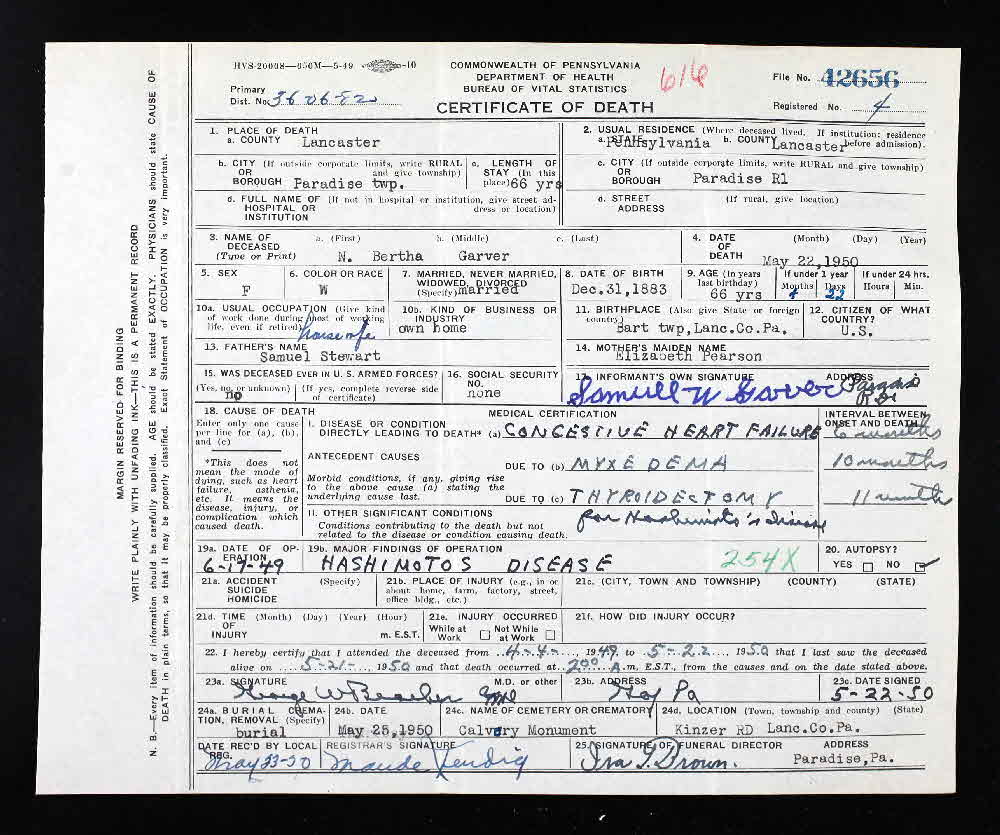 HVS-20008—650M—5-49 -10
COMMONWEALTH OF PENNSYLVANIA
DEPARTMENT OF HEALTH
BUREAU OF VITAL STATISTICS
CERTIFICATE OF DEATH
616
File No. 42656
Primary
Dist. No.
Registered No. 4
1. PLACE OF DEATH
a. COUNTY Lancaster
2. USUAL RESIDENCE (Where deceased lived. If institution: residence before admission).
a. STATE Pennsylvania b. COUNTY Lancaster
b. CITY (If outside corporate limits, write RURAL and give township)
OR
BOROUGH Paradise twp.
c. LENGTH OF STAY (In this place) 66 yrs
c. CITY (If outside corporate limits, write RURAL and give township)
OR
BOROUGH Paradise R1
d. FULL NAME OF (If not in hospital or institution, give street address or location)
HOSPITAL OR
INSTITUTION
d. STREET (If rural, give location)
ADDRESS
3. NAME OF DECEASED (Type or Print) a. (First) b. (Middle) c. (Last)
N. Bertha Garver
4. DATE OF DEATH (Month) (Day) (Year)
May 22,1950
5. SEX
F
6. COLOR OR RACE
W
7. MARRIED, NEVER MARRIED, WIDOWED, DIVORCED (Specify) married
8. DATE OF BIRTH
Dec.31,1883
9. AGE (In years last birthday)
66 yrs
If under 1 year
Months Days
4 22
If under 24 hrs.
Hours Min.
10a. USUAL OCCUPATION (Give kind of work done during most of working life, even if retired) housewife
10b. KIND OF BUSINESS OR INDUSTRY
own home
11. BIRTHPLACE (Also give State or foreign country)
Bart twp,Lanc.Co.Pa.
12. CITIZEN OF WHAT COUNTRY?
U.S.
13. FATHER'S NAME
Samuel Stewart
14. MOTHER'S MAIDEN NAME
Elizabeth Pearson
15. WAS DECEASED EVER IN U. S. ARMED FORCES?
(Yes, no, or unknown) (If yes, complete reverse side of certificate)
no
16. SOCIAL SECURITY NO.
none
17. INFORMANT'S OWN SIGNATURE ADDRESS
Samuel W Garver
18. CAUSE OF DEATH
Enter only one cause per line for (a), (b), and (c)
MEDICAL CERTIFICATION
INTERVAL BETWEEN ONSET AND DEATH
I. DISEASE OR CONDITION
DIRECTLY LEADING TO DEATH* (a) CONGESTIVE HEART FAILURE 6 months
*This does not mean the mode of dying, such as heart failure, asthenia, etc. It means the disease, injury, or complication which caused death.
ANTECEDENT CAUSES
DUE TO (b) MYXEDEMA 10 months
Morbid conditions, if any, giving rise to the above cause (a) stating the underlying cause last.
DUE TO (c) THYROIDECTOMY 11 months
for Hashimoto's disease
II. OTHER SIGNIFICANT CONDITIONS
Conditions contributing to the death but not related to the disease or condition causing death.
19a. DATE OF OPERATION
6-17-49
19b. MAJOR FINDINGS OF OPERATION
HASHIMOTOS DISEASE
254X
20. AUTOPSY?
YES NO
21a. ACCIDENT (Specify)
SUICIDE
HOMICIDE
21b. PLACE OF INJURY (e.g., in or about home, farm, factory, street, office bldg., etc.)
21c. (CITY, TOWN AND TOWNSHIP) (COUNTY) (STATE)
21d. TIME (Month) (Day) (Year) (Hour)
OF
INJURY m. E.S.T.
21e. INJURY OCCURRED
While at Work Not While at Work
21f. HOW DID INJURY OCCUR?
22. I hereby certify that I attended the deceased from 4-4-, 1949, to 5-22, 1950 that I last saw the deceased
alive on 5-21-, 1950 and that death occurred at 2 00 A.m. E.S.T., from the causes and on the date stated above.
23a. SIGNATURE M.D. or other
George W
23b. ADDRESS
Pa
23c. DATE SIGNED
5-22-50
24a. BURIAL CREMATION, REMOVAL (Specify)
burial
24b. DATE
May 25,1950
24c. NAME OF CEMETERY OR CREMATORY
Calvary Monument
24d. LOCATION (Town, township and county) (State)
Kinzer RD Lanc.Co.Pa.
DATE REC'D BY LOCAL REG.
May 23-50
REGISTRAR'S SIGNATURE
Maude Kendig
25. SIGNATURE OF FUNERAL DIRECTOR ADDRESS
Paradise,Pa.
MARGIN RESERVED FOR BINDING
WRITE PLAINLY WITH UNFADING INK—THIS IS A PERMANENT RECORD
N. B.—Every item of information should be carefully supplied. AGE should be stated EXACTLY. PHYSICIANS should state CAUSE OF
DEATH in plain terms, so that it may be properly classified. Exact Statement of OCCUPATION is very important.